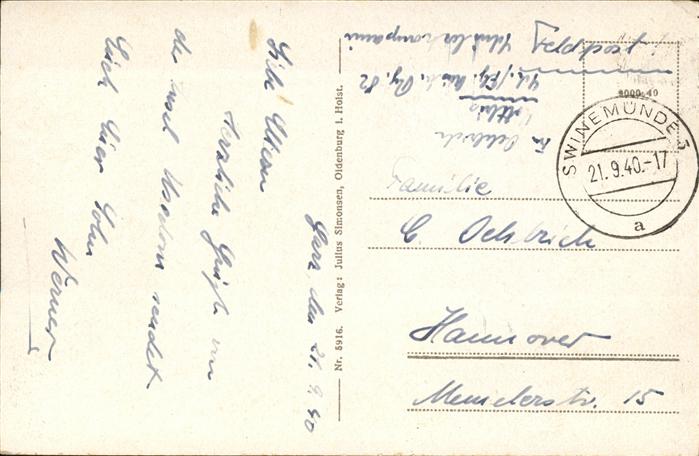 Garz den 21.9.40
Liebe Eltern
Herzliche Grüße von
der Insel Usedom sendet
Euch Euer Sohn
Werner
Nr. 5916. Verlag: Julius Simonsen, Oldenburg i. Holst.
Feldpost
Schülerkompanie
Cottbus
9000.40
SWINEMÜNDE 3
21.9.40.-17
a
Familie
C. Oelbrich
Hannover
15